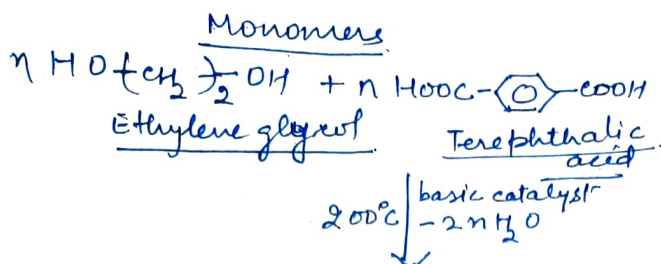 Monomers
n HO-(CH2)2-OH + n HOOC-⌬-COOH
Ethylene glycol Terephthalic acid
200°C basic catalyst
-2nH2O